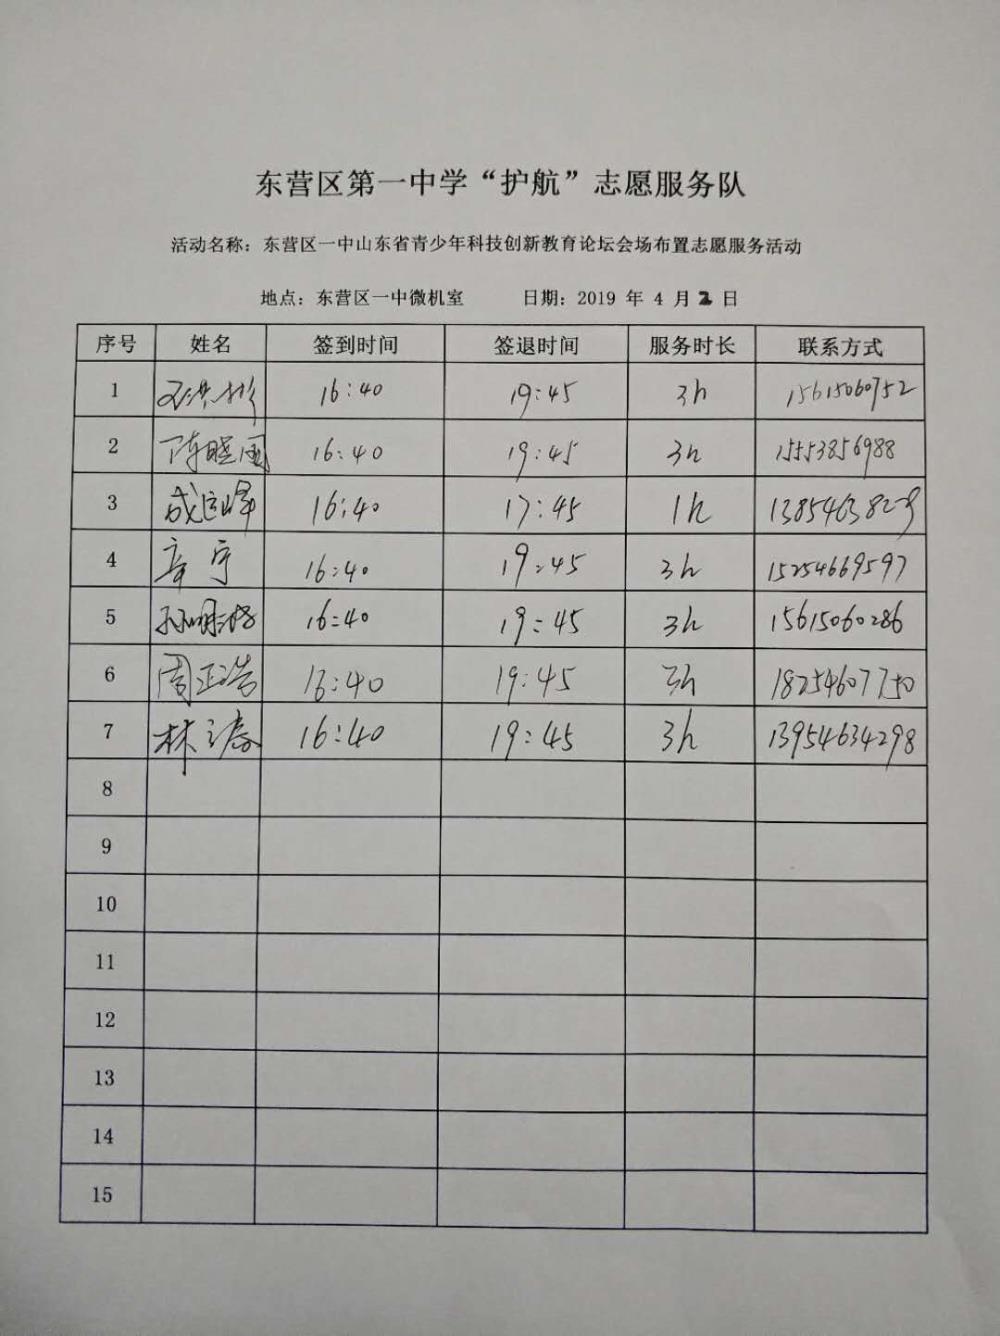 东营区第一中学“护航”志愿服务队
活动名称：东营区一中山东省青少年科技创新教育论坛会场布置志愿服务活动
地点：东营区一中微机室 日期：2019 年 4 月 2 日
序号 姓名 签到时间 签退时间 服务时长 联系方式
1 16:40 19:45 3h 15615060752
2 陈晓雨 16:40 19:45 3h 15553856988
3 16:40 17:45 1h
4 16:40 19:45 3h 15254669597
5 16:40 19:45 3h 15615060286
6 周正浩 16:40 19:45 3h 18254607750
7 16:40 19:45 3h 13954634298
8
9
10
11
12
13
14
15